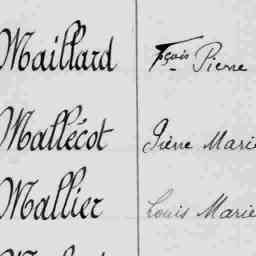 Maillard Fçois Pierre
Mallécot Irène Marie
Mallier Louis Marie